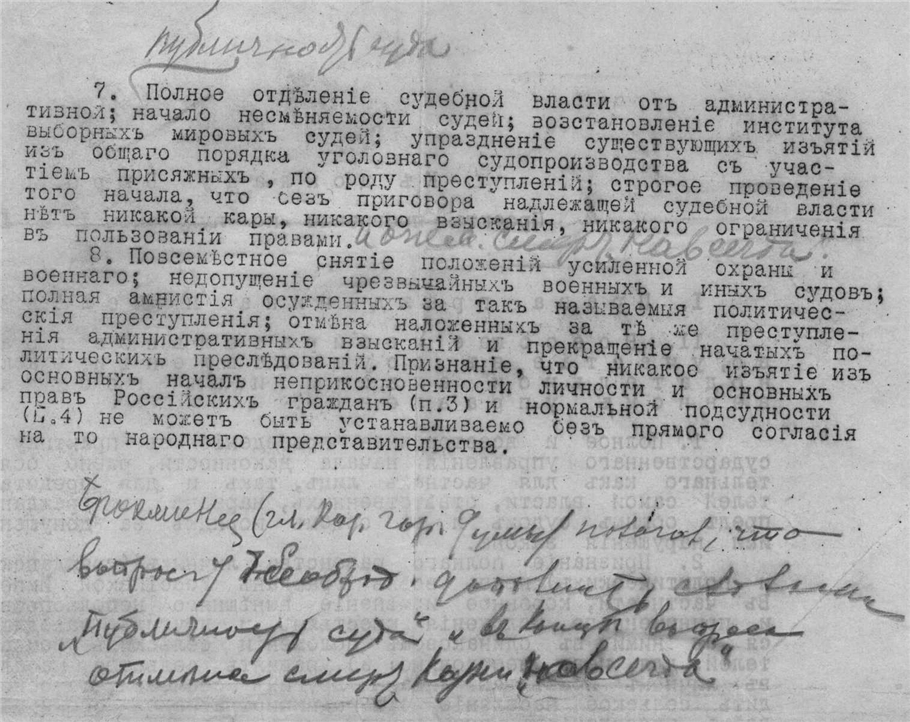 публичность суда
7. Полное отдѣленіе судебной власти отъ администра-
тивной; начало несмѣняемости судей; возстановленіе института
выборныхъ мировыхъ судей; упраздненіе существующихъ изъятій
изъ общаго порядка уголовнаго судопроизводства съ учас-
тіемъ присяжныхъ, по роду преступленій; строгое проведеніе
того начала, что безъ приговора надлежащей судебной власти
нѣтъ никакой кары, никакого взысканія, никакого ограниченія
въ пользованіи правами. смерт. навсегда.
8. Повсемѣстное снятіе положеній усиленной охраны и
военнаго; недопущеніе чрезвычайныхъ военныхъ и иныхъ судовъ;
полная амнистія осужденныхъ за такъ называемыя политичес-
скія преступленія; отмѣна наложенныхъ за тѣ же преступле-
нія административныхъ взысканій и прекращеніе начатыхъ по-
литическихъ преслѣдованій. Признаніе, что никакое изъятіе изъ
основныхъ началъ неприкосновенности личности и основныхъ
правъ Россійскихъ гражданъ (п.3) и нормальной подсудности
(п.4) не можетъ быть устанавливаемо безъ прямого согласія
на то народнаго представительства.
(гл. гор. Думы) что
вопросу 7 необход. дополнить словами
"публичность суда" и въ концѣ вопроса
отмена смерт. казни "навсегда"